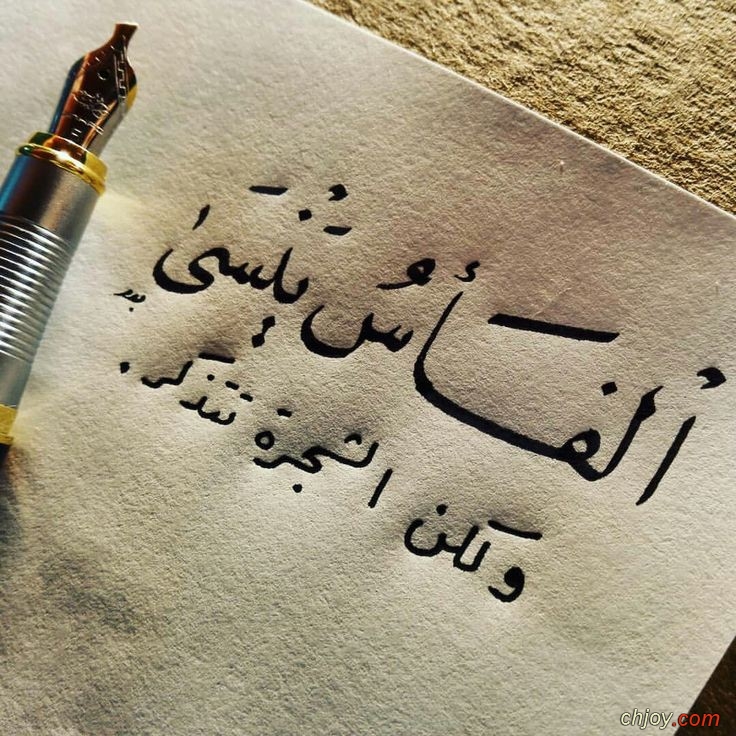 الفَأسُ يَنْسَىٰ
ولَكن الشجرة تتذَكر .
chjoy.com